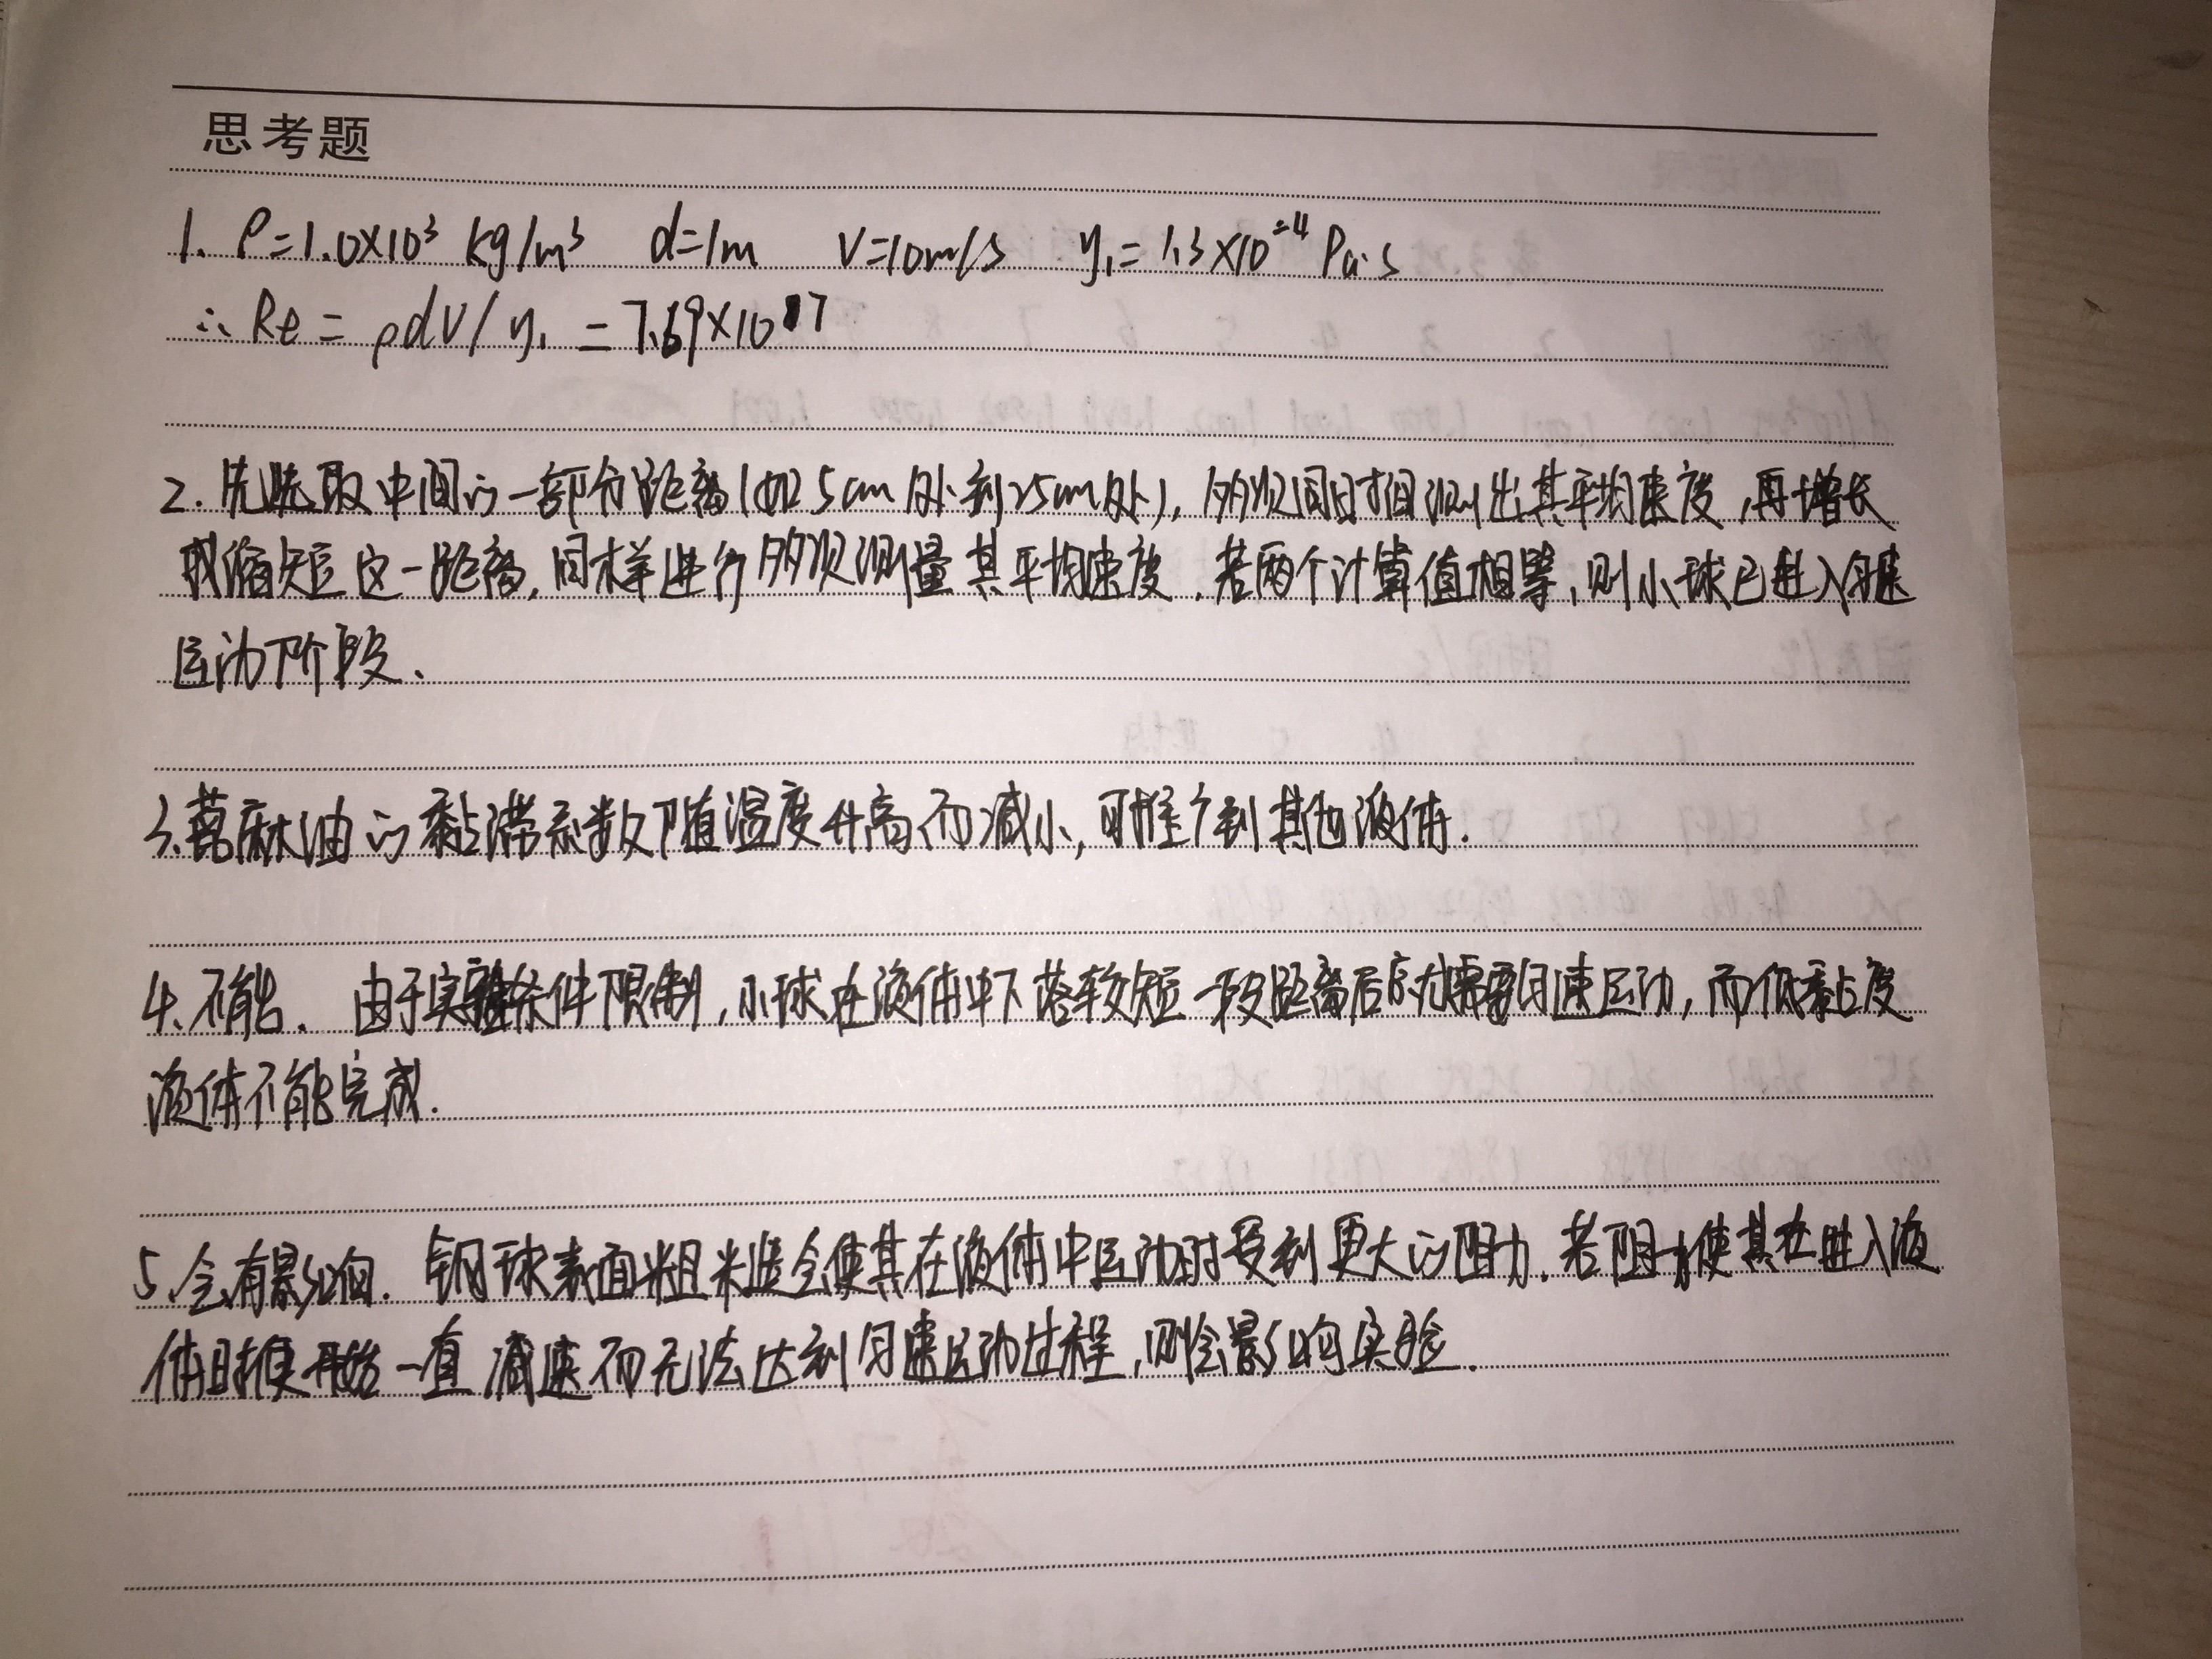 思考题
1. ρ=1.0×10³ kg/m³ d=1m V=10m/s η₁=1.3×10⁻⁴ Pa·s
∴ Re = ρdV/η₁ = 7.69×10⁷
2. 先选取中间的一部分距离(如25cm处到25cm处), 多次同时间测出其平均速度, 再增长
或缩短这一距离, 同样进行多次测量其平均速度. 若两个计算值相等, 则小球已进入匀速
运动阶段.
3. 蓖麻油的黏滞系数随温度升高而减小, 可推广到其他液体.
4. 不能. 由于实验条件限制, 小球在液体中下落较短一段距离后就需要匀速运动, 而低黏度
液体不能完成.
5. 会有影响. 钢球表面粗糙会使其在液体中运动时受到更大的阻力. 若阻力使其在进入液
体时便开始一直减速而无法达到匀速运动过程, 则会影响实验.